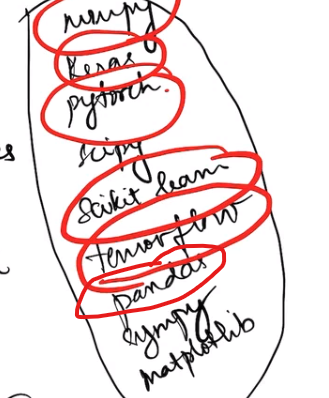 numpy
Keras
pytorch.
scipy
Scikit learn
tensorflow
pandas
sympy
matplotlib